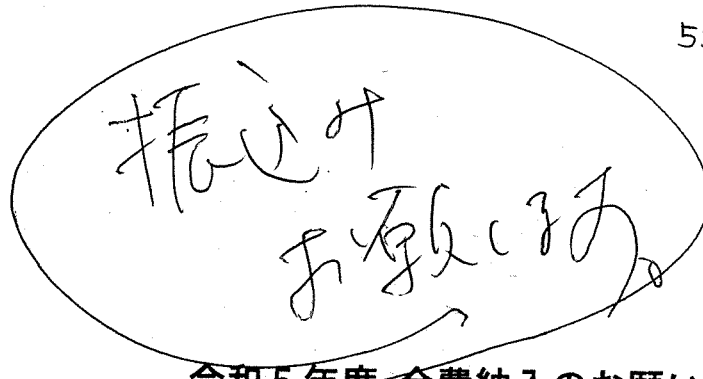 5
振込み
お願いします。
令和5年度 会費納入のお願い